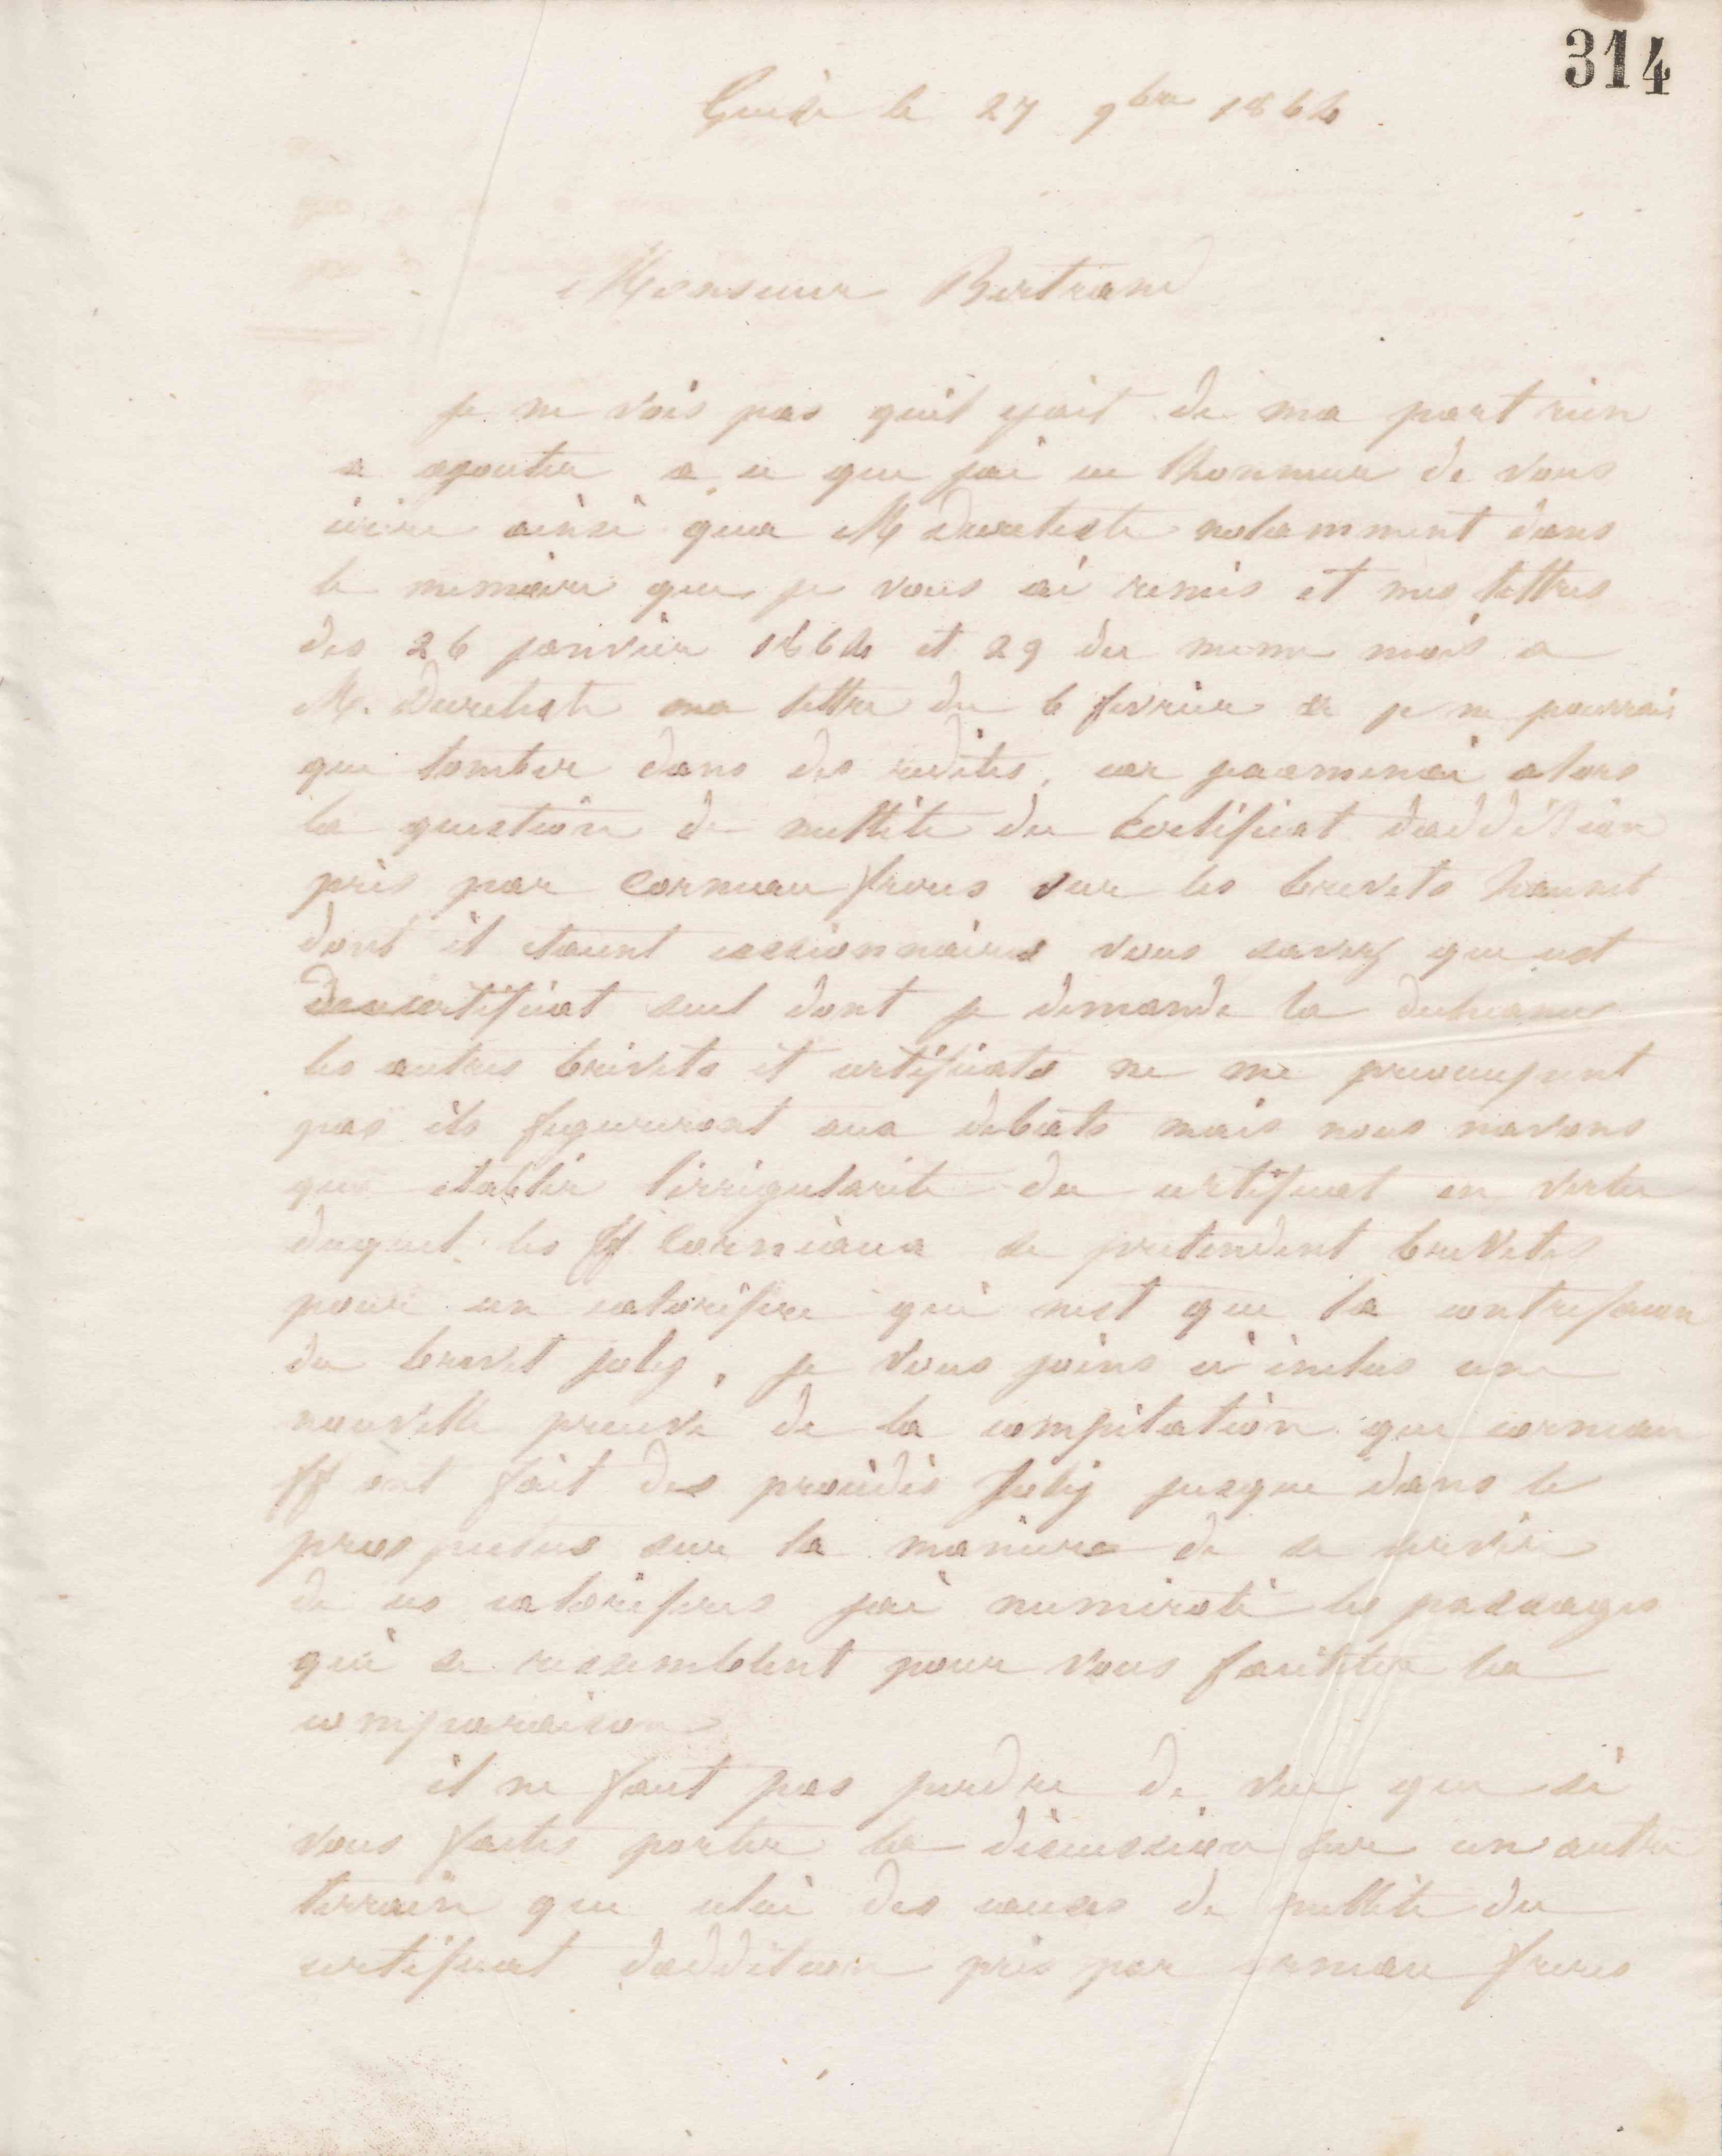 314
Guise le 27 9bre 1864
Monsieur Bertrand
je ne vois pas quil yait de ma part rien
a ajouter a ce que jai eu lhonneur de vous
ecrire ainsi qua M notamment dans
le memoire que je vous ai remis et mes lettres
des 26 janvier 1864 et 29 du meme mois a
M. ma lettre du 6 fevrier je ne pourrais
que tomber dans des redites, car jexaminai alors
la question de nullite du Certificat daddition
pris par Corneau freres sur les brevets
dont il etaient cessionnaires vous savez que cest
certificat seul dont je demande la decheance
les autres brevets et certificats ne me preoccupent
pas ils figureront aux debats mais nous navons
qua etablir lirregularite du certificat en vertu
duquel les ff Corneaux se pretendent brevetes
pour un calorifere qui nest que la contrefacon
du brevet joly, je vous joins ci inclus une
nouvelle preuve de la compilation que corneau
ff ont fait des procedes Joly jusque dans le
prospectus sur la maniere de se servir
de ces caloriferes jai numeroté les passages
qui se ressemblent pour vous faciliter la
comparaison
il ne faut pas perdre de vue que si
vous faites porter la discussion sur un autre
terrain que celui des causes de nullite du
certificat daddition pris par corneau freres